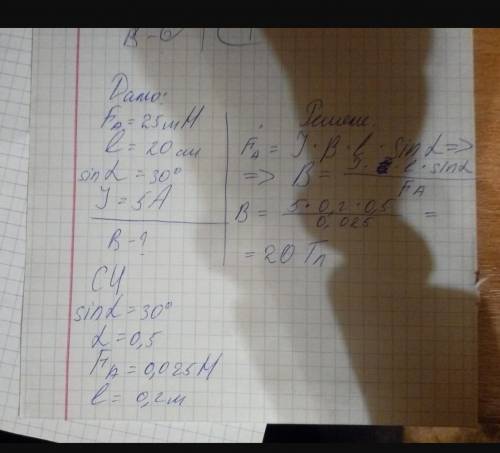 B-
Дано:
Fₐ = 25 mH
l = 20 см
sin L = 30°
J = 5A
B - ?
СИ
sin L = 30°
L = 0,5
Fₐ = 0,025H
l = 0,2 м
Решение
Fₐ = J · B · l · sin L =>
=> B = J · l · sin L / Fₐ
B = 5 · 0,2 · 0,5 / 0,025 =
= 20 Тл